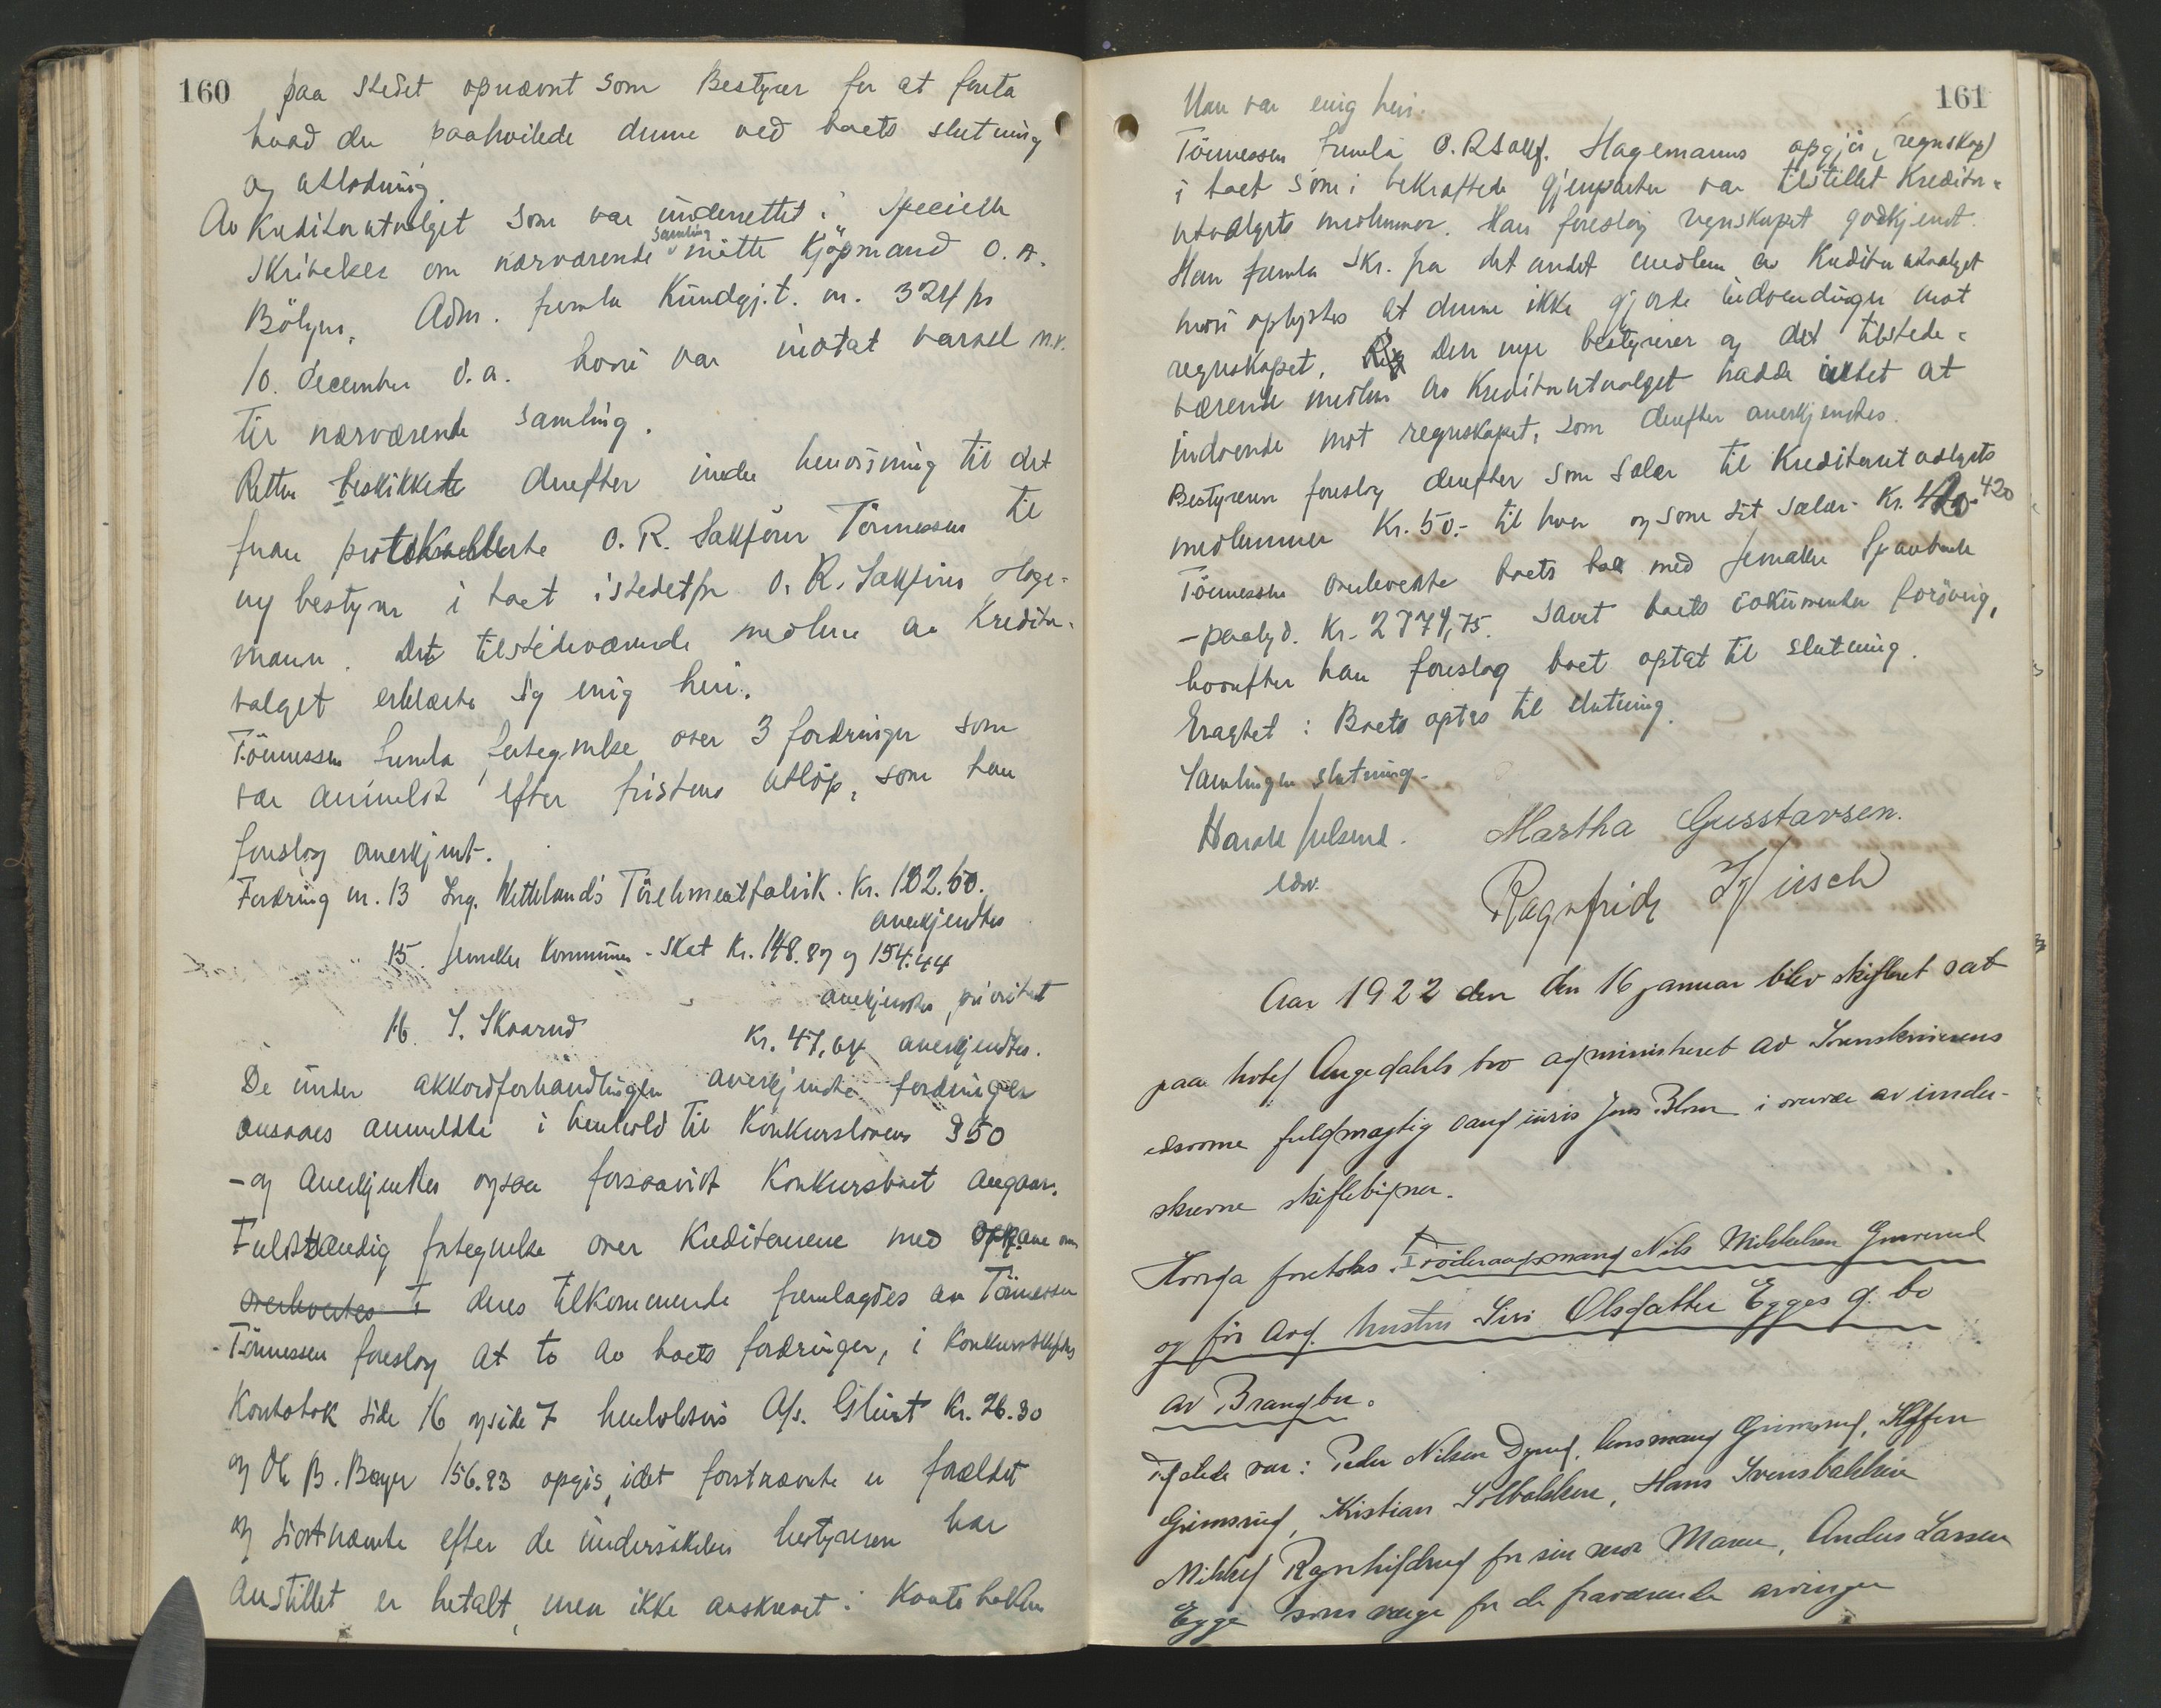 160
paa stedet opnævnt som Bestyrer for at foreta
hvad der paahvilede denne ved boets slutning
og utlodning
Av Kreditorutvalget som var underrettet i speciell
skrivelse om nærværende samling møtte Kjøpmand O. A.
Adm. fremla Kundgj.t. nr. 324 for
10. december d.a. hvori var indtat varsel m.v.
til nærværende samling.
Retten beskikkete derefter under henvisning til det
foran protokollerte O. R. Sakfører Tönnessen til
ny bestyrer i boet istedetfor O. R. Sakförer Hage-
mann. Det tilstedeværende medlem av Kreditor-
valget erklærte sig enig heri.
Tönnessen fremla fortegnelse over 3 fordringer som
var anmeldt efter fristens utlöp, som han
foreslog anerkjent.
Fordring nr. 13 Ing. Kr. 132.50.
anerkjendtes
15. Jevnaker Kommune - skat Kr. 148.87 og 154.44
anerkjendtes, prioritet
16 S. Skaarud Kr. 47,04 anerkjendtes.
De under akkordforhandlingen anerkjendte fordringer
ansaaes anmeldte i henhold til Konkurslovens §50
- og anerkjendtes ogsaa forsaavidt Konkursboet angaar.
Fuldstændig fortegnelse over Kreditorerne med opgave over
overleveres deres tilkommende fremlagdes av Tönnessen
Tönnessen foreslog at to av boets fordringer, i
Kontobok side 16 og side 7 henholdsvis A/s. Glint Kr. 26.30
og Ole B. Berger 156.93 opgis, idet förstnævnte er forældet
og sistnævnte efter de undersökelser bestyreren har
anstillet er betalt, men ikke avskrevet i Kontoboken
161
Man var enig heri.
Tönnessen fremla O.R.Sakf. Hagemanns opgjör (regnskap)
i boet som i bekræftede gjenparter var tilstillet Kreditor-
utvalgets medlemmer. Han foreslog regnskapet godkjent.
Han fremla skr. fra det andet medlem av Kreditorutvalget
hvori oplystes at denne ikke gjorde indvendinger mot
regnskapet. Den nye bestyrer og det tilstede-
værende medlem av Kreditorutvalget hadde intet at
indvende mot regnskapet, som derefter anerkjendtes.
Bestyreren foreslog derefter som salær til Kreditorutvalgets
medlemmer Kr. 50.- til hver og som sit salær Kr. 420
Tönnessen overleverte boets bok med Jevnaker Sparebank
- paalyd. Kr. 2774,75. samt boets dokumenter forövrig,
hvorefter han foreslog boet optat til slutning.
Eragtet: Boets optas til slutning.
Samlingen slutning.
Martha Gusstavsen.
Ragnfrid
Aar 1922 den den 16 januar blev skifteret sat
paa hotel Augedahls bro administreret av Sorenskriverens
edsvorne fuldmægtig cand juris Jens Blom i overvær av under-
skrevne skiftevidner.
Hvorda foretokes: Föderaadsmand Nils Mikkelsen
og før avd. hustru Siri Olsdatter Egges d. bo
av Brandbu.
Tilstede var: Peder Nilsen Dynud, lensmand Grimsrud, Steffen
Grimsrud, Kristian Solbakken, Hans Svensbakken
Mikkel Ragnhildrud for sin mor Maren, Anders Larsen
Egge som verge for de fraværende arvinger